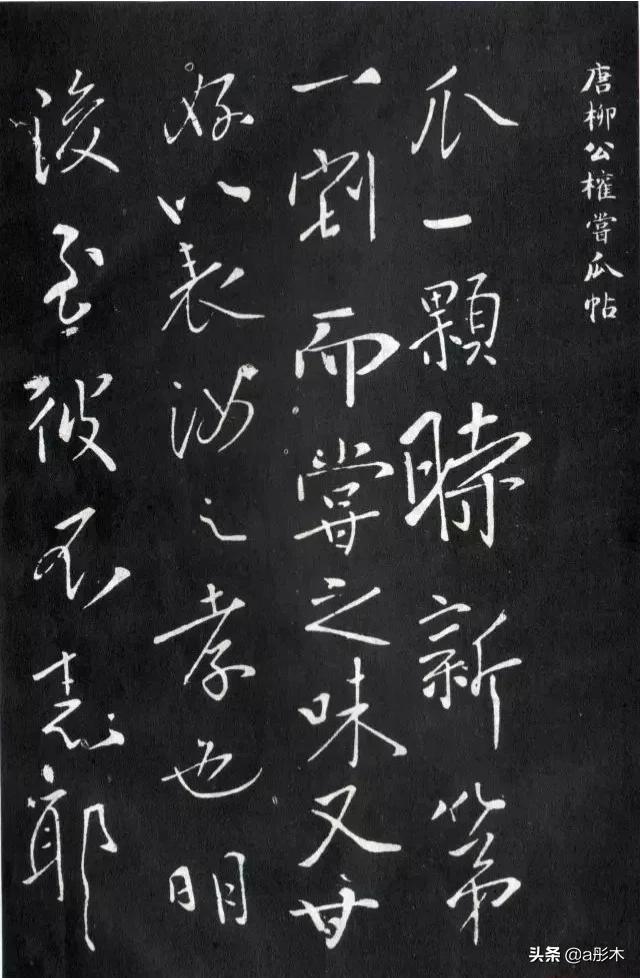 唐柳公權嘗瓜帖
瓜一顆時新第
一割而嘗之味又甘
好以表汝之孝也明
後至彼不志耶
头条 @a彤木